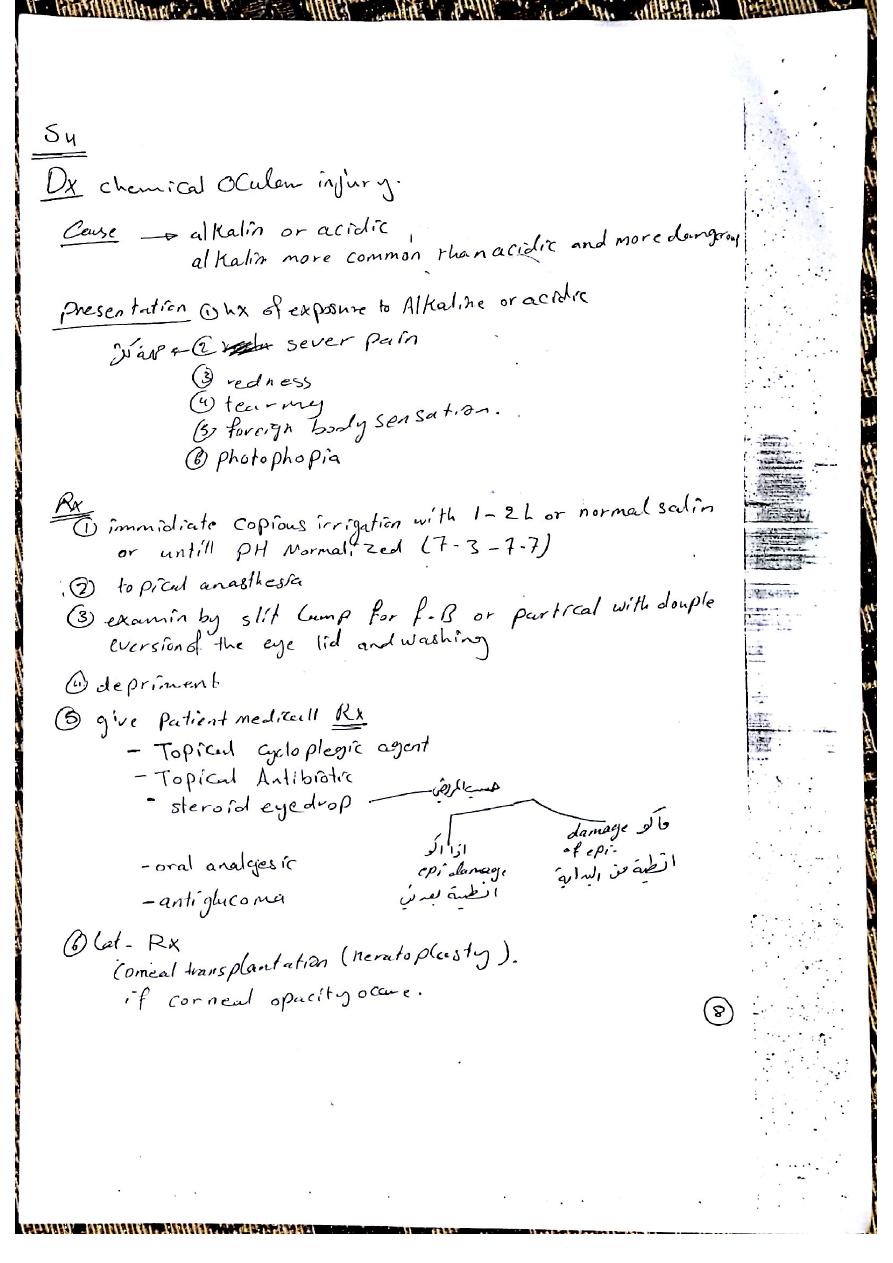 S4
Dx chemical Ocular injury.
Cause → alkalin or acidic,
alkalin more common than acidic and more dangerous
Presentation ① hx of exposure to Alkaline or acidic
← ② sever pain
③ redness
④ tearing
⑤ foreign body sensation.
⑥ photophopia
Rx
① immidiate copious irrigation with 1-2L or normal salin
or untill PH Normalized (7-3-7-7)
② topical anasthesia
③ examin by slit lamp for f.B or partical with douple
eversion of the eye lid and washing
④ depriment
⑤ give patient medicall Rx
- Topical cycloplegic agent
- Topical Antibiotic
- steroid eyedrop حسب المريض
اذا اكو
epi damage
انطية بعدين
ماكو damage
of epi-
انطية من البداية
- oral analgesic
- antiglucoma
⑥ Lat- Rx
Corneal transplantation (keratoplasty).
if corneal opacity occure.
8